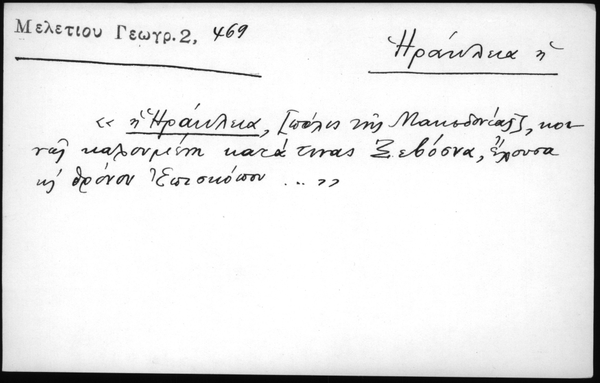 Μελετίου Γεωγρ. 2, 469
Ἡράκλεια ἡ
« ἡ Ἡράκλεια, [πόλις τῆς Μακεδονίας], κοι
νῶς καλουμένη κατά τινας Ξεβόσνα, ἔχουσα
κ᾽ θρόνον Ἐπισκόπου ... »